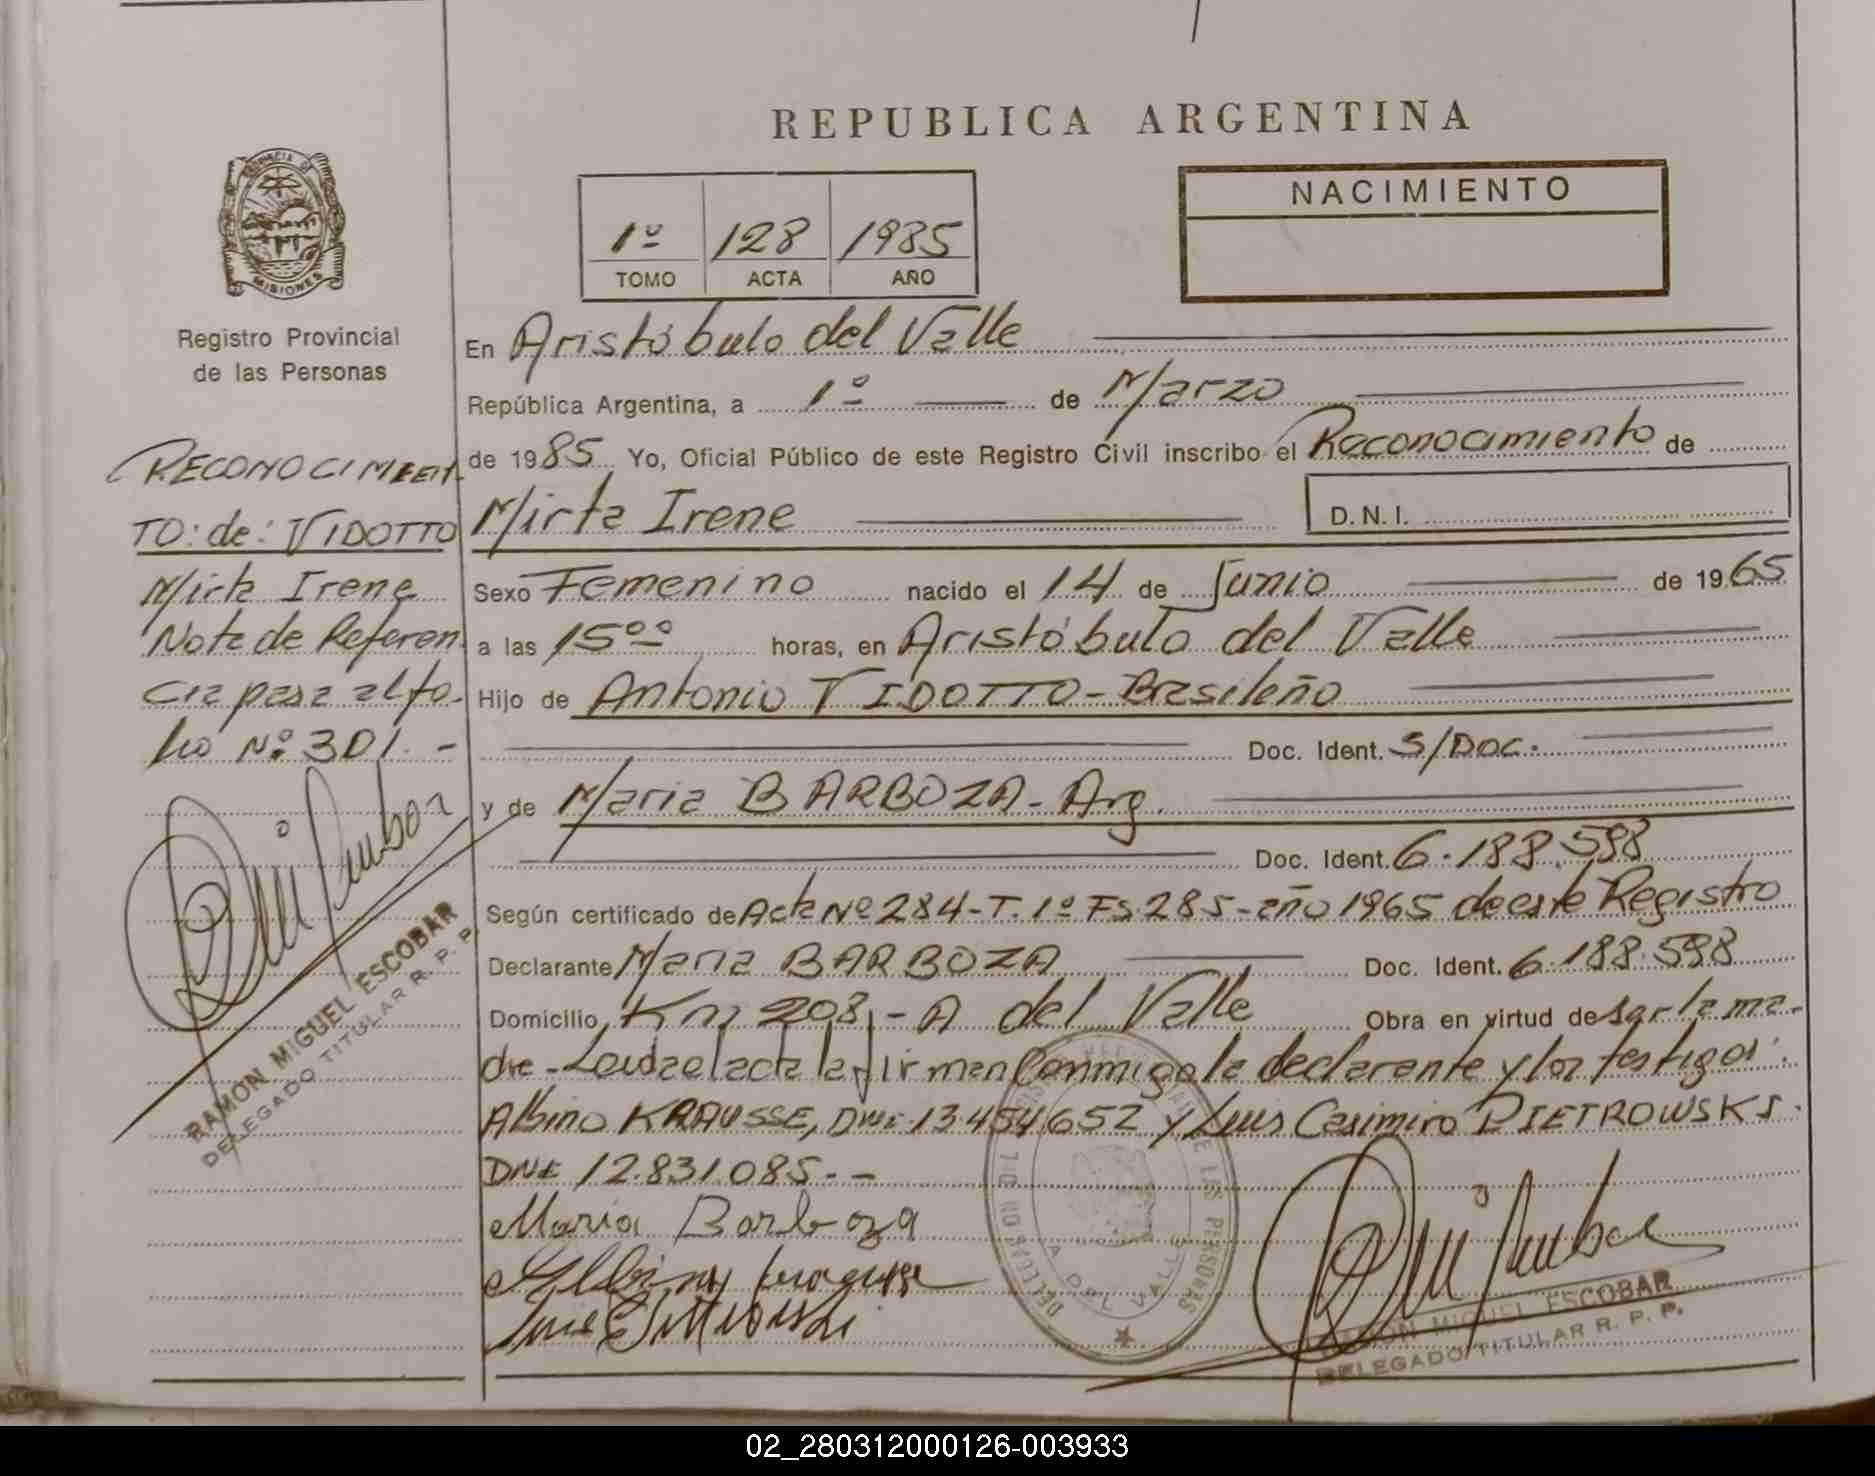 REPUBLICA ARGENTINA
NACIMIENTO
1º 128 1985
TOMO ACTA AÑO
PROVINCIA DE
MISIONES
Registro Provincial
de las Personas
RECONOCIMIEN
TO: de: VIDOTTO
Mirta Irene
Nota de Referen
cia pasa al fo-
lio Nº 301.-
RAMON MIGUEL ESCOBAR
DELEGADO TITULAR R. P. P.
En Aristóbulo del Valle
República Argentina, a 1º de Marzo
de 1985 Yo, Oficial Público de este Registro Civil inscribo el Reconocimiento de
Mirta Irene D.N.I.
Sexo Femenino nacido el 14 de Junio de 1965
a las 15ºº horas, en Aristóbulo del Valle
Hijo de Antonio VIDOTTO - Brasileño
Doc. Ident. S/Doc.
y de Maria BARBOZA - Arg.
Doc. Ident. 6.188.598
Según certificado de Acta Nº 284-T. 1º Fs 285-año 1965 de este Registro
Declarante Maria BARBOZA Doc. Ident. 6.188.598
Domicilio Km 208 - A del Valle Obra en virtud de ser la ma-
dre - Leida el acta la firman Conmigo la declarante y los testigos:
Albino KRAUSSE, DNI: 13.454.652 y Luis Casimiro PIETROWSKI.
DNI 12.831.085.--
Maria Barboza
DEL VALLE
RAMON MIGUEL ESCOBAR
DELEGADO TITULAR R. P. P.
02_280312000126-003933